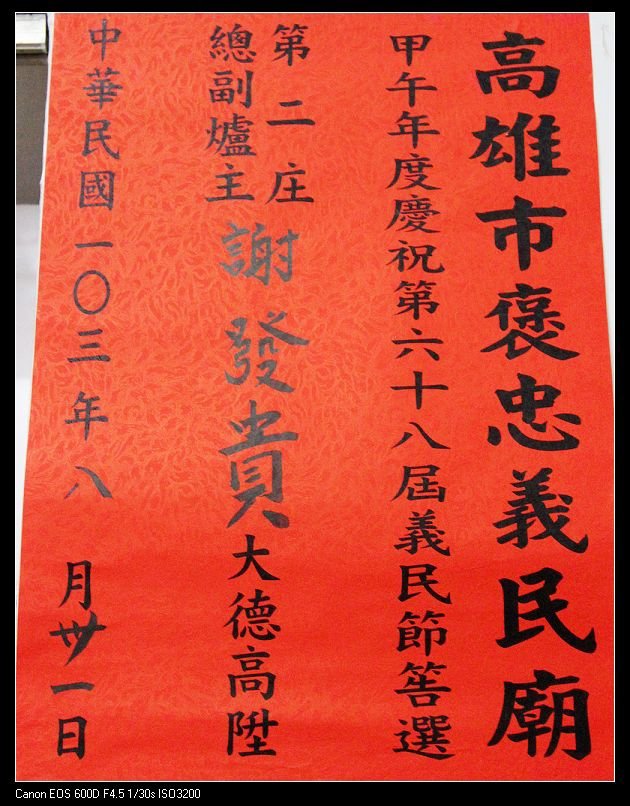 高雄市褒忠義民廟
甲午年度慶祝第六十八屆義民節筶選
第二庄
總副爐主
謝發貴大德高陞
中華民國一〇三年八月卅一日
Canon EOS 600D F4.5 1/30s ISO3200